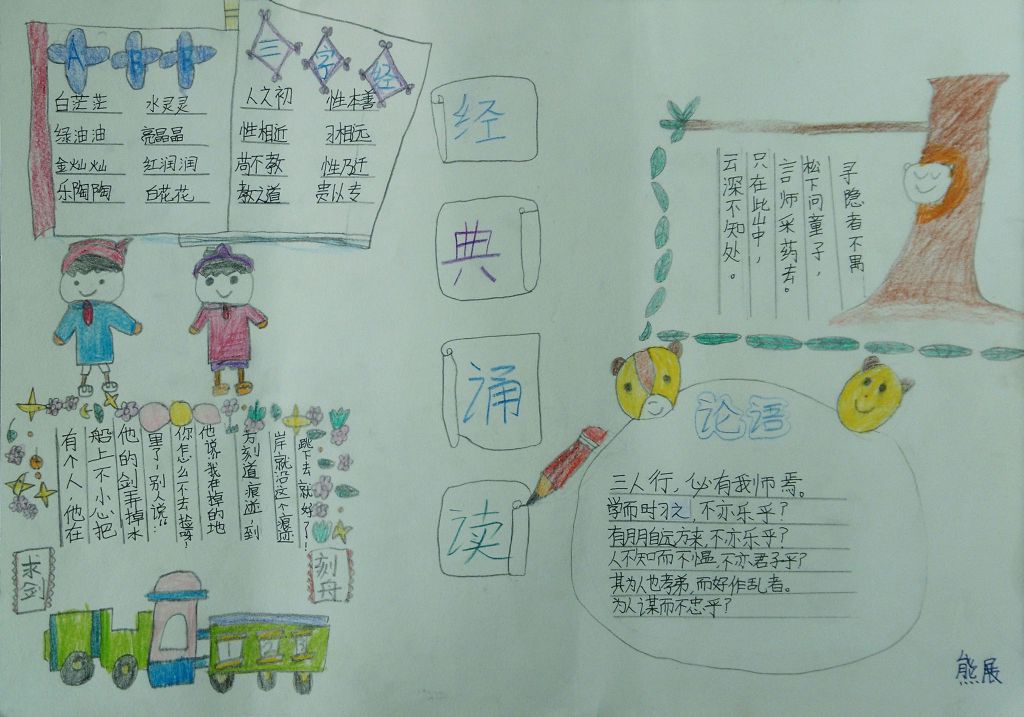 ABB
白茫茫 水灵灵
绿油油 亮晶晶
金灿灿 红润润
乐陶陶 白花花
三字经
人之初 性本善
性相近 习相远
苟不教 性乃迁
教之道 贵以专
经典诵读
寻隐者不禺
松下问童子，
言师采药去。
只在此山中，
云深不知处。
有个人，他在
船上不小心把
他的剑弄掉水
里了，别人说：“
你怎么不去捡呀？
他说我在掉的地
方刻道痕迹，到
岸就沿这个痕迹
跳下去就好了！
刻舟
求剑
1 2 3
论语
三人行，必有我师焉。
学而时习之，不亦乐乎？
有朋自远方来，不亦乐乎？
人不知而不愠，不亦君子乎？
其为人也孝弟，而好作乱者。
为人谋而不忠乎？
熊展